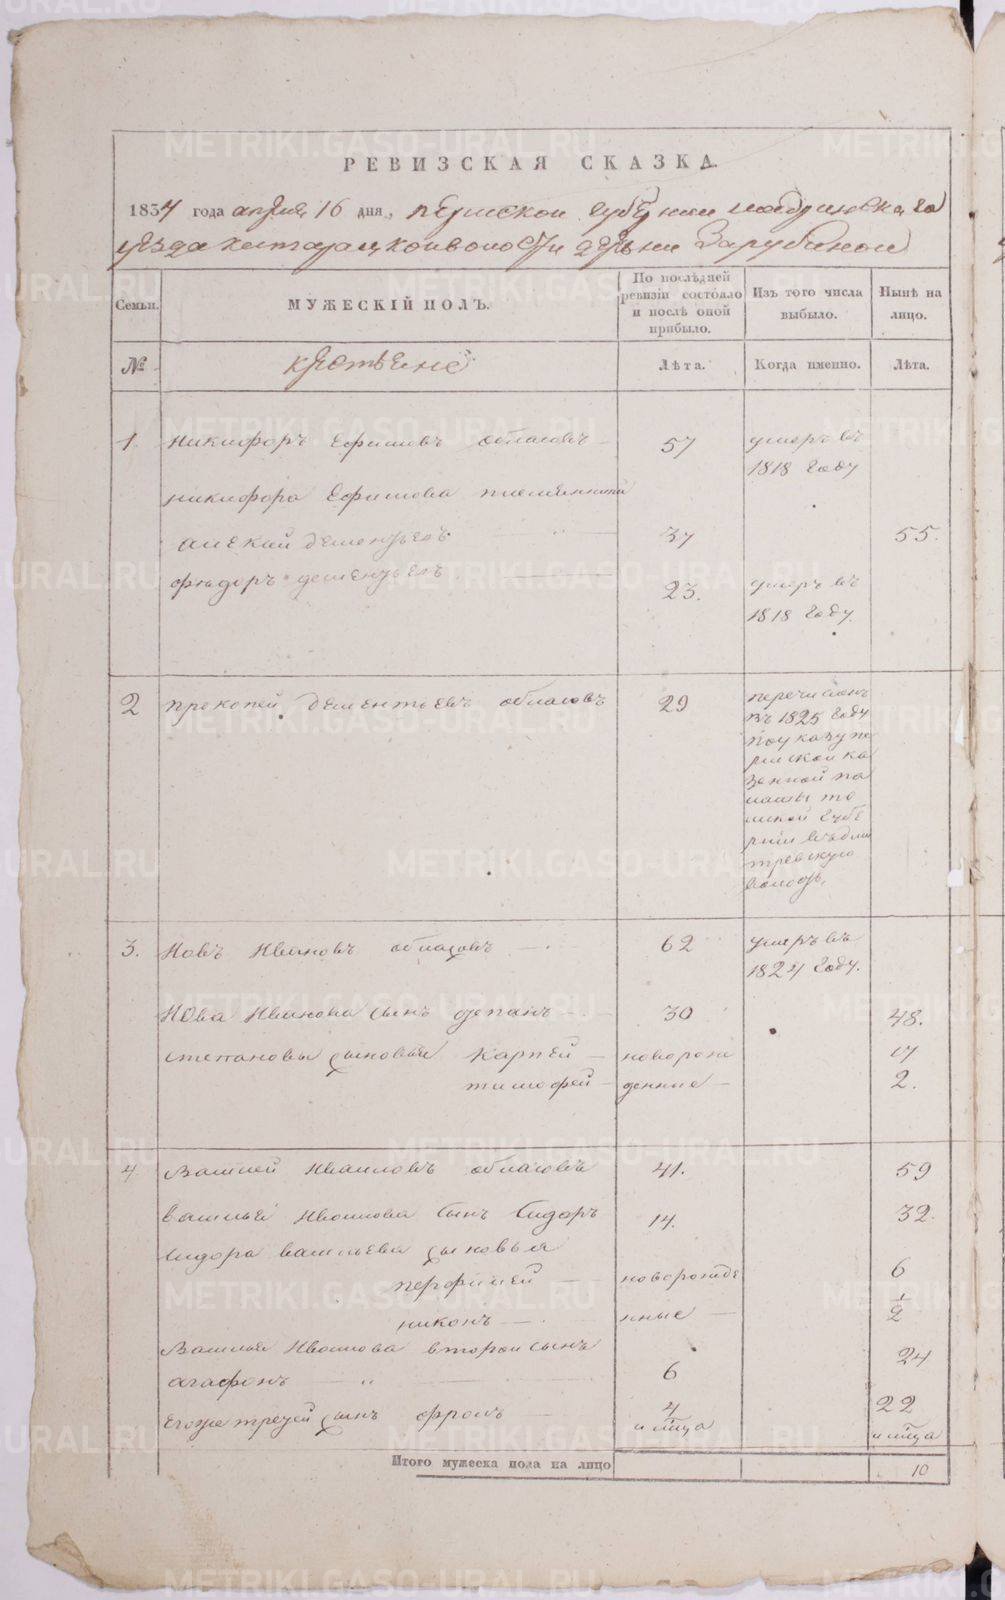 РЕВИЗСКАЯ СКАЗКА.
1834 года апреля 16 дня, пермской губернии шадринскаго
уезда деревни Зарубиной
Семьи.
МУЖЕСКІЙ ПОЛЪ.
По послѣдней ревизіи состояло и послѣ оной прибыло.
Изъ того числа выбыло.
Нынѣ на лицо.
№
крестьяне
Лѣта.
Когда именно.
Лѣта.
1. никифоръ Ефимовъ обласовъ 57 умеръ въ
1818 году
никифора Ефимова племянники
алексий дементьевъ 37 55.
фѣдоръ дементьевъ 23. умеръ въ
1818 году.
2 прокопей дементьевъ обласовъ 29 перечисленъ
въ 1825 году
по указу пе
рмской ка
зенной па
латы то
мской губе
рніи въ дми
тревскую
волость.
3. Иовъ Ивановъ обласовъ 62 умеръ въ
1824 году.
Иова Иванова сынъ степанъ 30 48.
степановы сыновья карпей новорож 17
тимофей денные 2.
4. Василей Ивановъ обласовъ 41. 59
василья Иванова сынъ Сидоръ 14. 32.
Сидора васильева сыновья
перфилей новорожде 6
никонъ нные 1/2
Василья Иванова второй сынъ
агафонъ 6 24
Егоже третей сынъ фролъ 4 22
Итого мужеска пола на лицо 10
METRIKI.GASO-URAL.RU